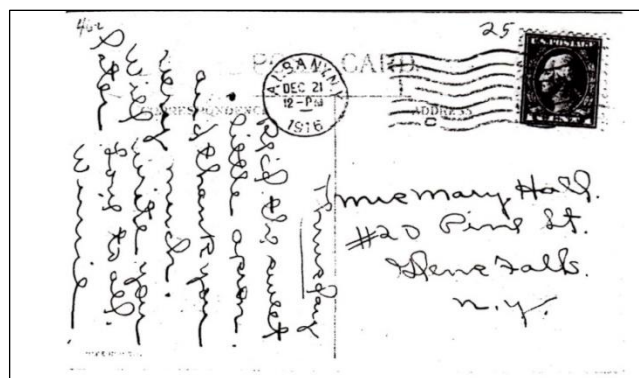 25
U.S. POSTAGE
POST CARD
ALBANY, N.Y.
DEC 21
12-PM
1916
CORRESPONDENCE
ADDRESS
Thursday
Rec'd the sweet
little apron
and thank you
very much.
Will write you
later Love to all
Winnie
Mrs Mary Hall.
#20 Pine St.
Glens Falls.
N.Y.